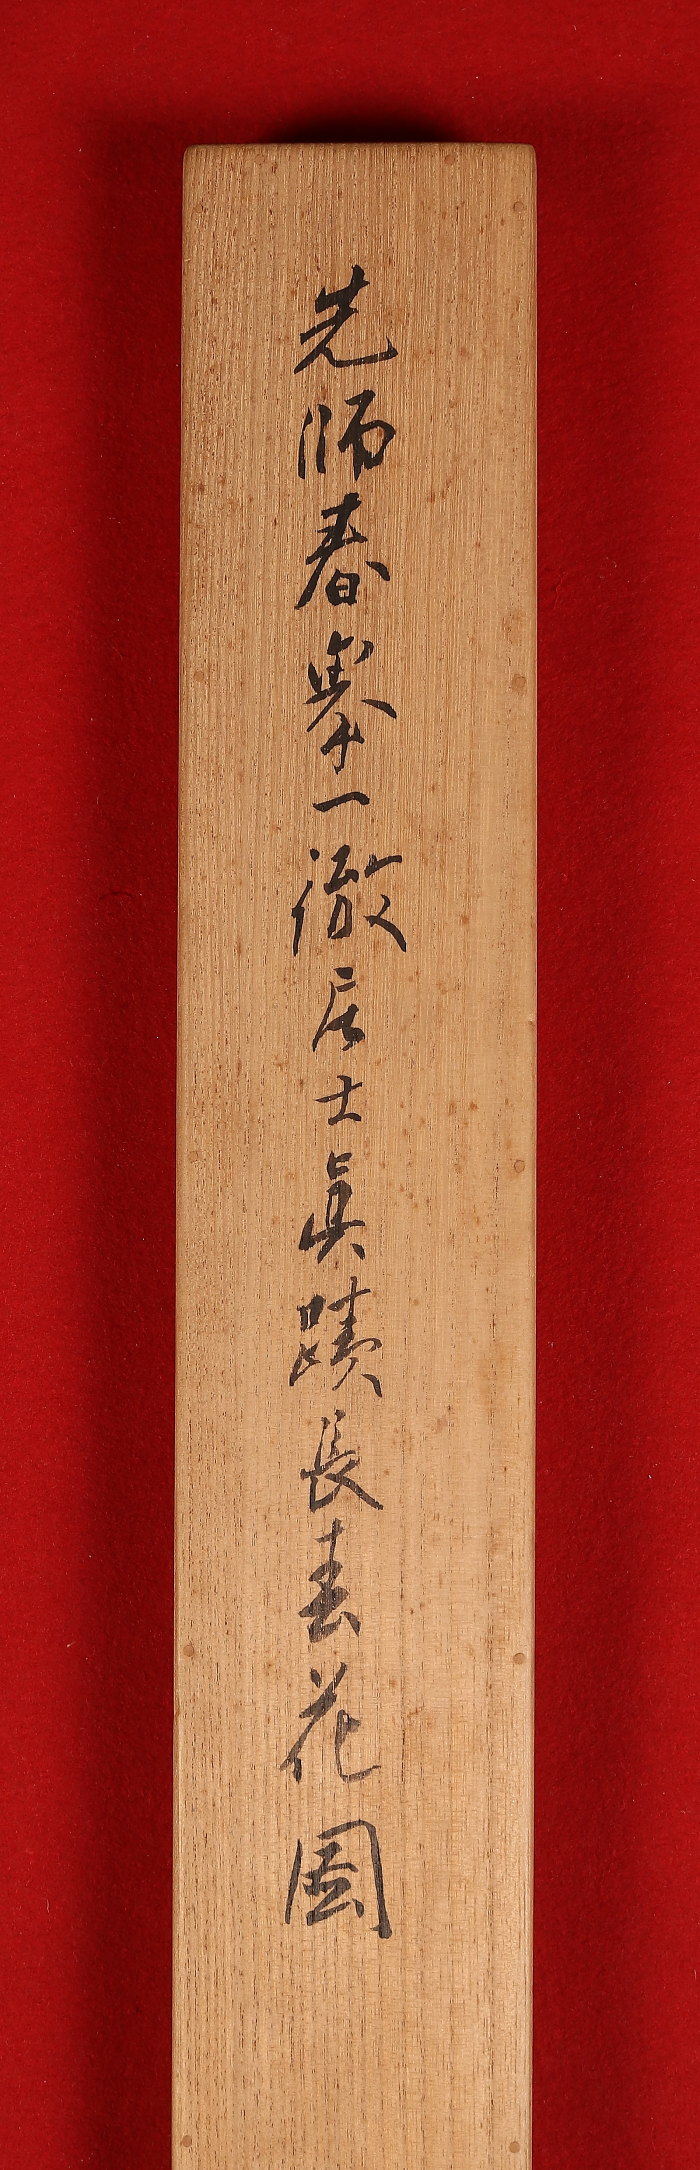 先師春挙一徹居士眞蹟長春花圖